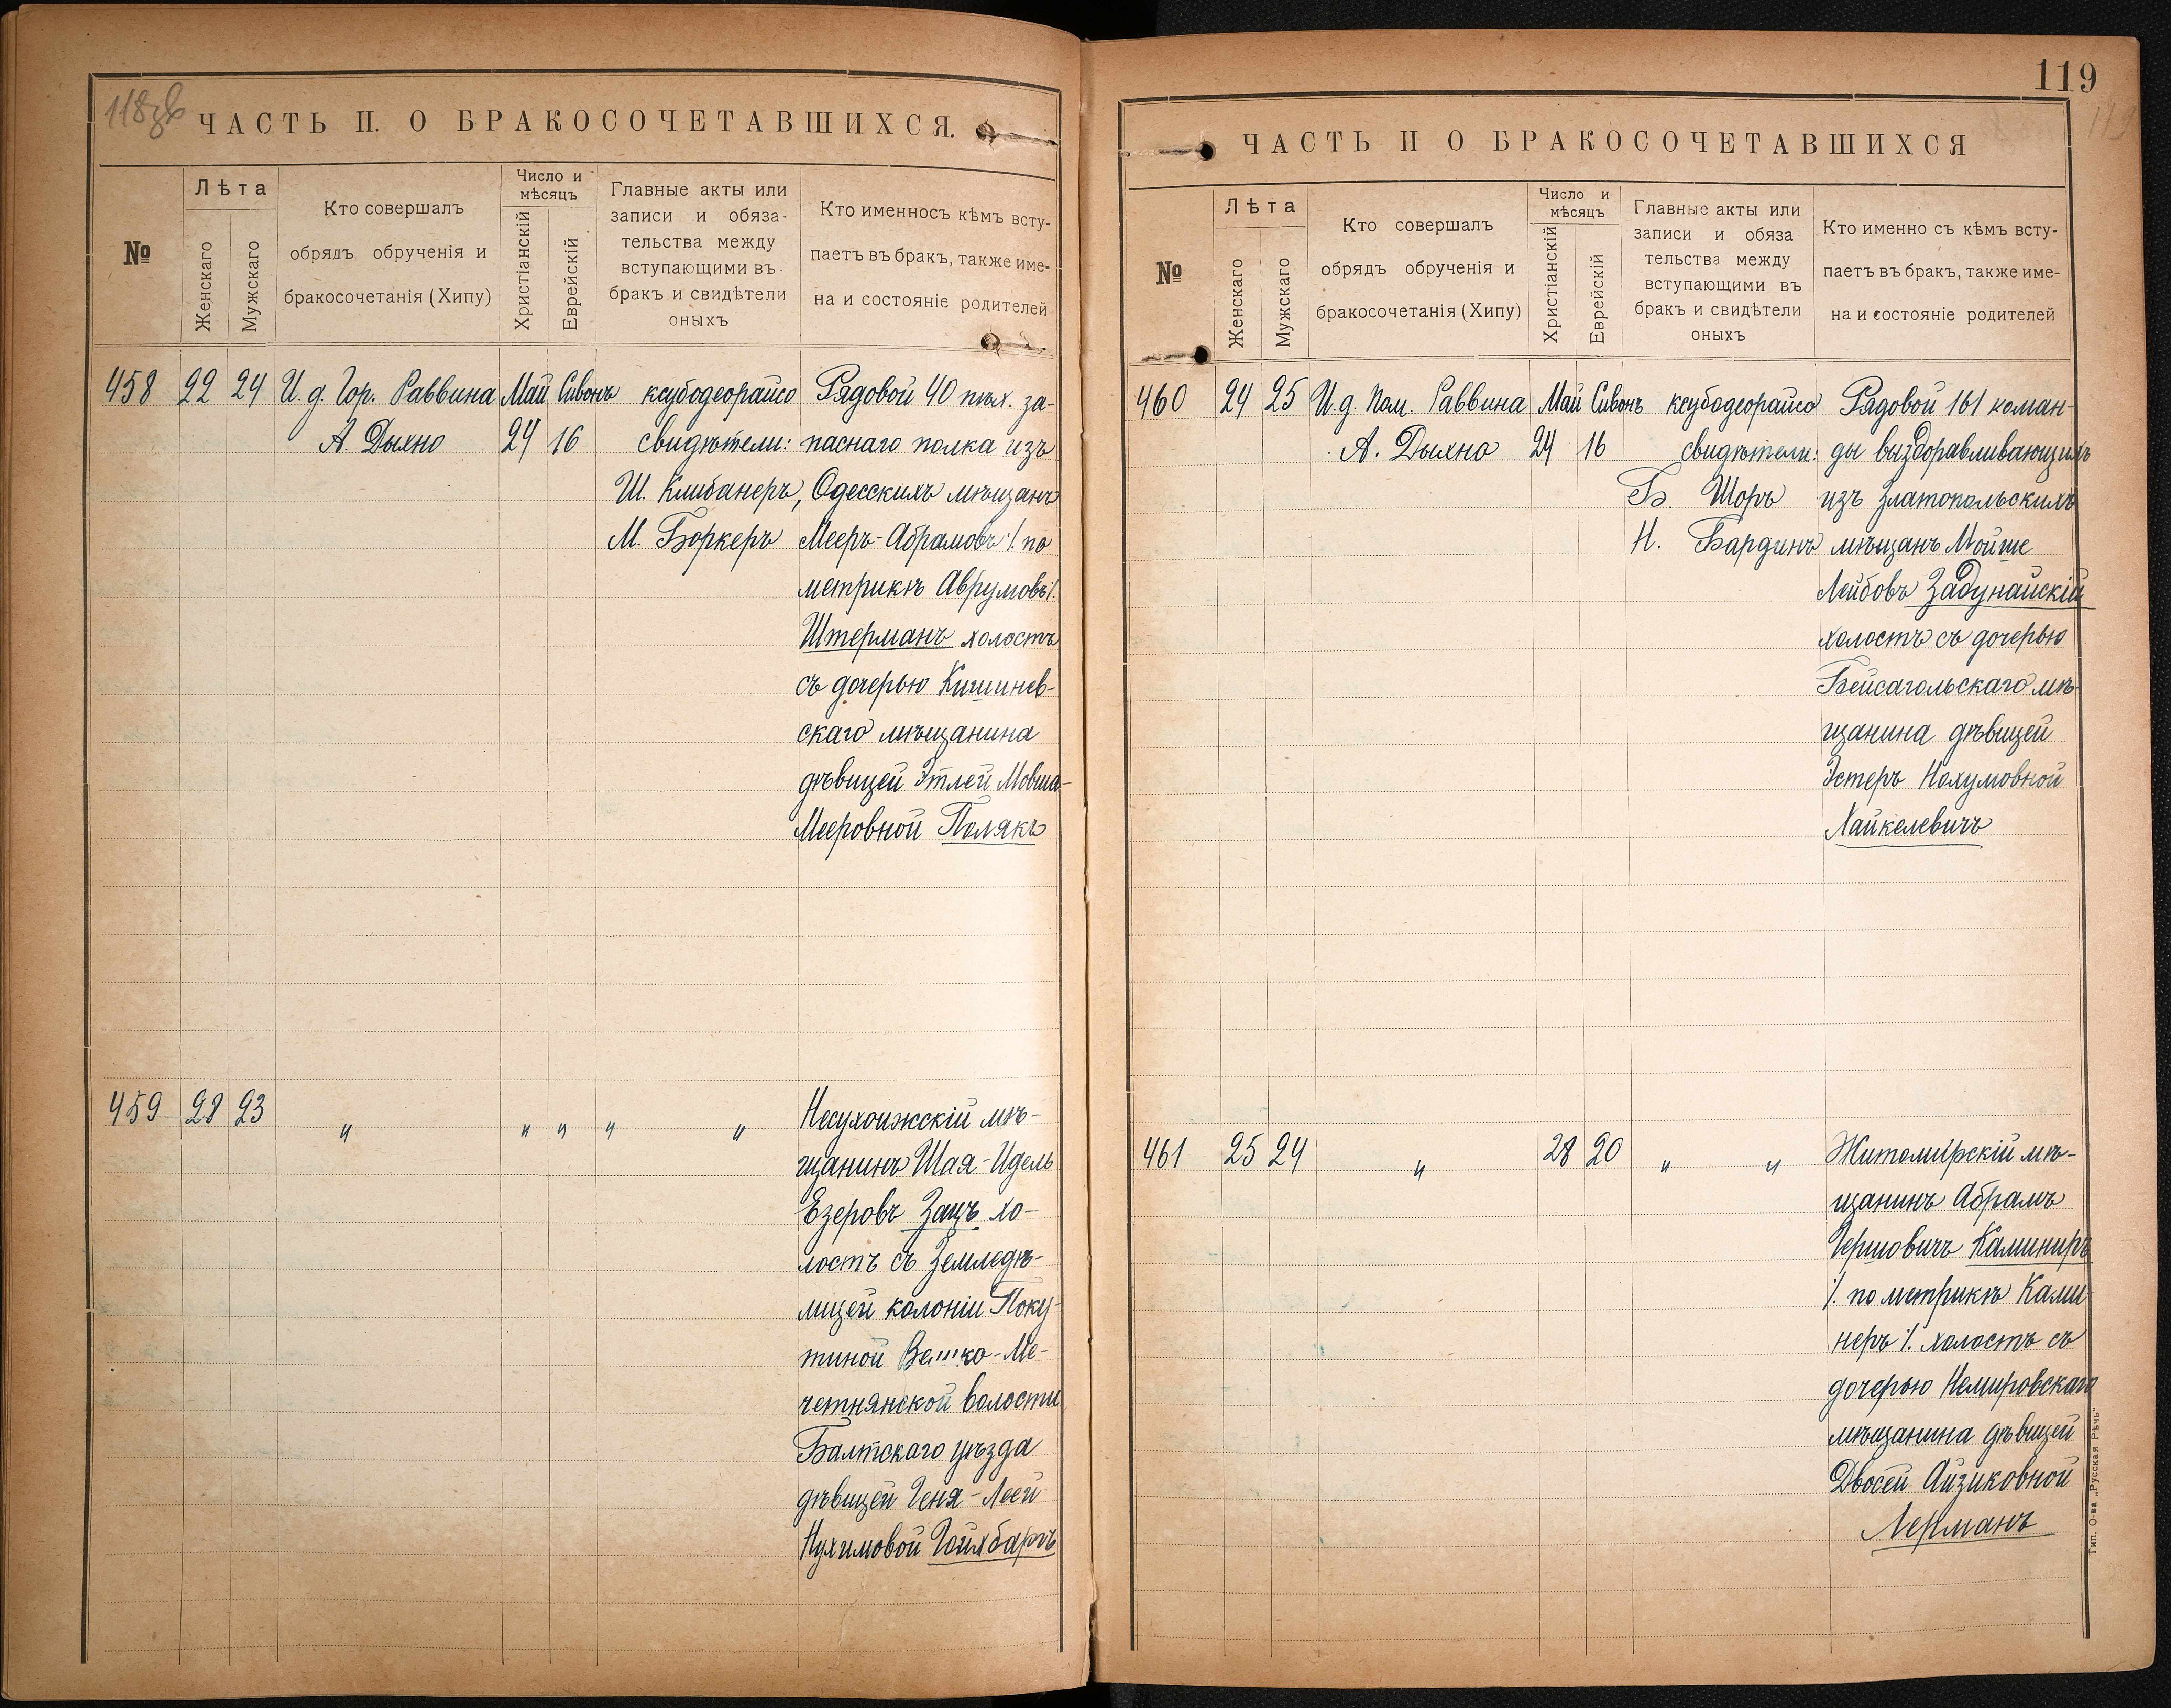 118зв
ЧАСТЬ II. О БРАКОСОЧЕТАВШИХСЯ.
№
Лѣта
Женскаго
Мужскаго
Кто совершалъ
обрядъ обрученія и
бракосочетанія (Хипу)
Число и
мѣсяцъ
Христіанскій
Еврейскій
Главные акты или
записи и обяза-
тельства между
вступающими въ
бракъ и свидѣтели
оныхъ
Кто именносъ кѣмъ всту-
паетъ въ бракъ, также име-
на и состояніе родителей
458 22 24 И. д. Гор. Раввина Май Сивонъ ксубодеорайсо Рядовой 40 пѣх. за-
А. Дыхно 24 16 свидѣтели: паснаго полка изъ
Ш. Клибанеръ, Одесскихъ мѣщанъ
М. Боркеръ Мееръ-Абрамовъ /. по
метрикѣ Аврумовъ /.
Штерманъ холостъ
съ дочерью Кишинев-
скаго мѣщанина
дѣвицей Этлей Мовша-
Мееровной Полякъ
459 28 23 " " " " " Несухоижскій мѣ-
щанинъ Шая-Идель
Езеровъ Зацъ хо-
лостъ съ Земледѣ-
лицей колоніи Поку-
тиной -Ме-
четнянской волости
Балтскаго уѣзда
дѣвицей Геня-Леей
Нухимовой Гойхбаргъ
119
ЧАСТЬ II О БРАКОСОЧЕТАВШИХСЯ
№
Лѣта
Женскаго
Мужскаго
Кто совершалъ
обрядъ обрученія и
бракосочетанія (Хипу)
Число и
мѣсяцъ
Христіанскій
Еврейскій
Главные акты или
записи и обяза
тельства между
вступающими въ
бракъ и свидѣтели
оныхъ
Кто именно съ кѣмъ всту-
паетъ въ бракъ, также име-
на и состояніе родителей
460 24 25 И. д. Пом. Раввина Май Сивонъ ксубодеорайсо Рядовой 161 коман-
А. Дыхно 24 16 свидѣтели: ды выздоравливающихъ
Б. Шоръ изъ Златопольскихъ
Н. Бардинъ мѣщанъ Мойше
Лейбовъ Задунайскій
холостъ съ дочерью
Бейсагольскаго мѣ-
щанина дѣвицей
Эстеръ Нохумовной
Хайкелевичъ
461 25 24 " 28 20 " " Житомирскій мѣ-
щанинъ Абрамъ
Гершовичъ Каминиръ
/. по метрикѣ Ками-
неръ /. холостъ съ
дочерью Немировскаго
мѣщанина дѣвицей
Двосей Айзиковной
Лерманъ
Тип. О-ва „Русская Рѣчь"